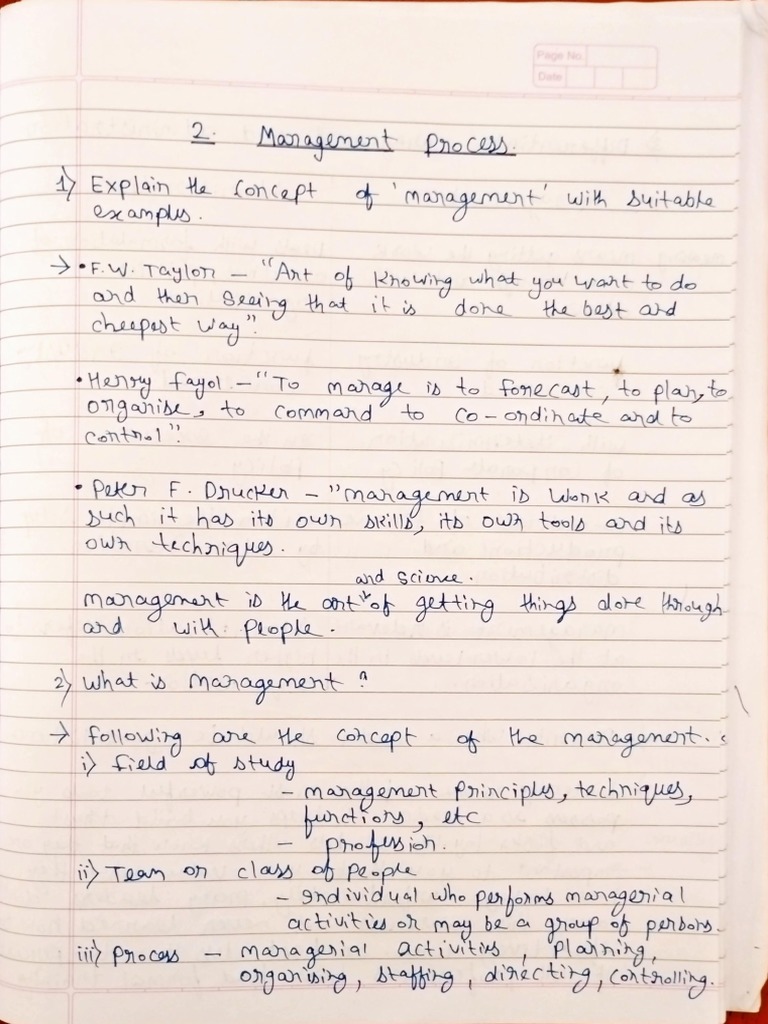 Page No.
Date
2. Management Process.
1) Explain the concept of 'management' with suitable
examples.
→ • F.W. Taylor – "Art of knowing what you want to do
and then seeing that it is done the best and
cheapest way".
• Henry Fayol – "To manage is to forecast, to plan, to
organise, to command to co-ordinate and to
control".
• Peter F. Drucker – "management is work and as
such it has its own skills, its own tools and its
own techniques.
and science.
management is the art of getting things done through
and with people.
2) What is management ?
→ following are the concept of the management.
i) field of study
– management principles, techniques,
functions, etc
– profession.
ii) Team or class of people
– Individual who performs managerial
activities or may be a group of persons.
iii) Process – managerial activities, planning,
organising, staffing, directing, controlling.